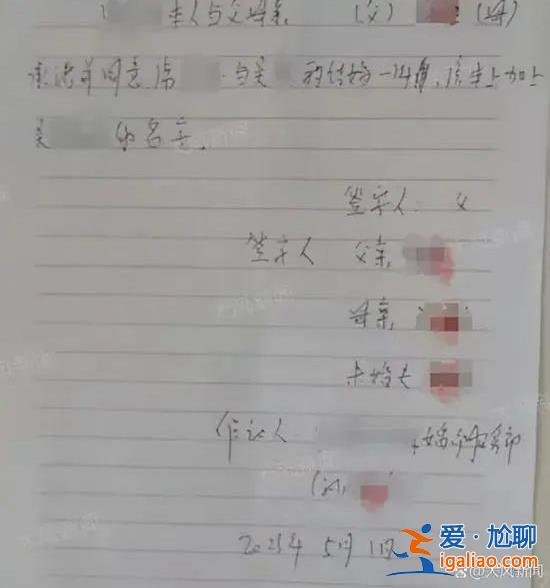 本人与父母亲 (父) (母)
承诺并同意 与吴 和结婚一个月,房产上加上
吴 的名字。
签字人 父
签字人 父亲
母亲
未婚夫
作证人 婚介服务部
2025年 5月 1日
爱·尬聊
igaliao.com
@大风新闻